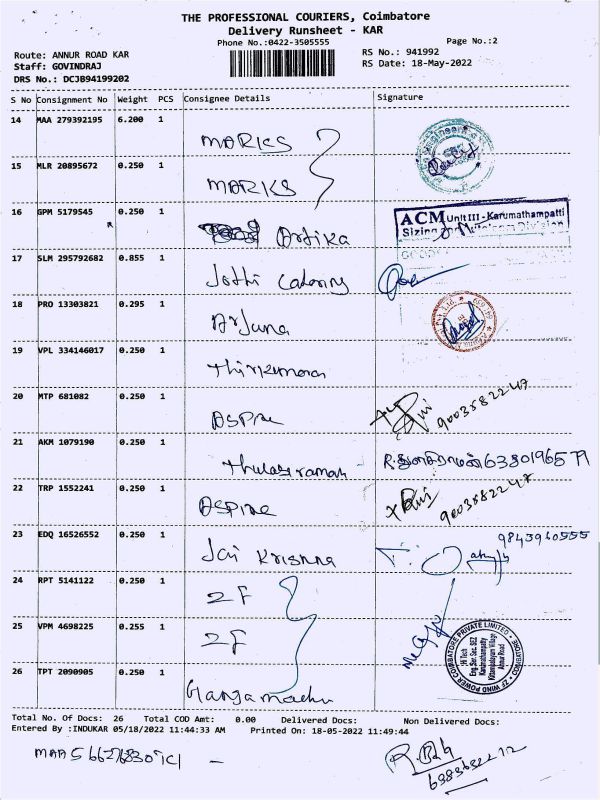 THE PROFESSIONAL COURIERS, Coimbatore
Delivery Runsheet - KAR
Phone No.:0422-3505555
Page No.:2
Route: ANNUR ROAD KAR
RS No.: 941992
Staff: GOVINDRAJ
RS Date: 18-May-2022
DRS No.: DCJB94199202
S No Consignment No Weight PCS Consignee Details Signature
14 MAA 279392195 6.200 1
MARKS
15 MLR 20895672 0.250 1
MARKS
16 GPM 5179545 0.250 1
ACM Unit III - Karumathampatti
Artika
17 SLM 295792682 0.855 1
Jothi
18 PRO 13303821 0.295 1
Arjuna
19 VPL 334146017 0.250 1
20 MTP 681082 0.250 1
Aspire
9003582247
21 AKM 1079190 0.250 1
Thulasiraman R.துளசிராமன் 6380196579
22 TRP 1552241 0.250 1
Aspire
9003582247
23 EDQ 16526552 0.250 1
9843960555
Jai Krishna
24 RPT 5141122 0.250 1
ZF
25 VPM 4698225 0.255 1
ZF
ZF WIND POWER COIMBATORE PRIVATE LIMITED
26 TPT 2090905 0.250 1
Total No. Of Docs: 26 Total COD Amt: 0.00 Delivered Docs: Non Delivered Docs:
Entered By :INDUKAR 05/18/2022 11:44:33 AM Printed On: 18-05-2022 11:49:44